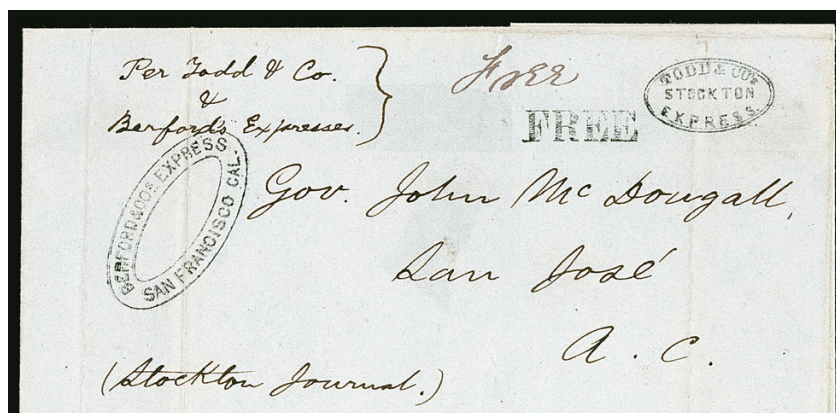 Per Todd & Co.
&
Berford's Expresses.
Free
FREE
TODD & CO'S
STOCKTON
EXPRESS.
BERFORD & CO'S EXPRESS
SAN FRANCISCO CAL.
Gov. John McDougall,
San José
A. C.
(Stockton Journal.)